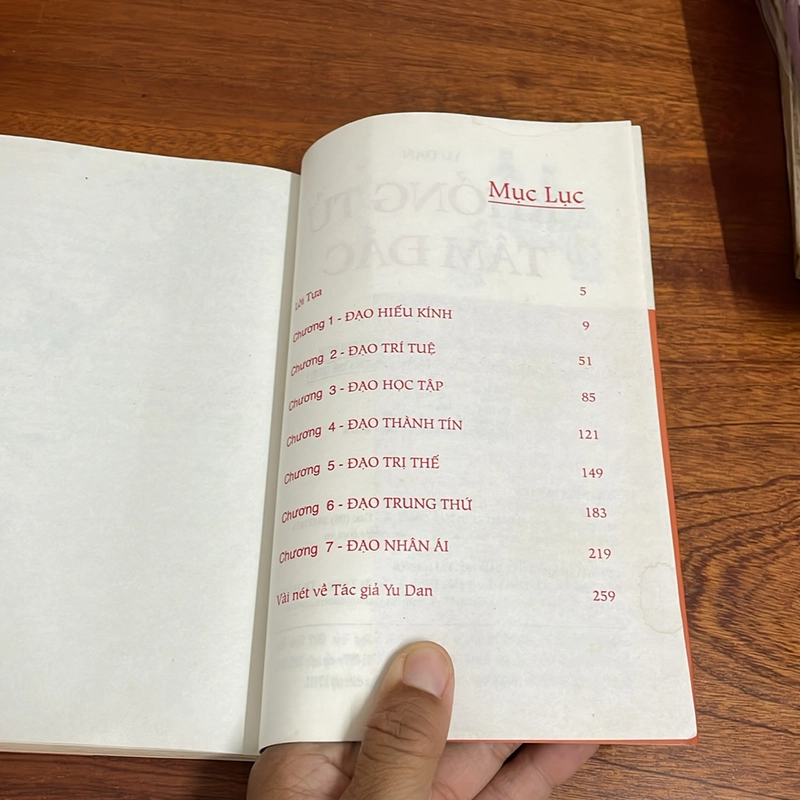 Mục Lục
Lời Tựa 5
Chương 1 - ĐẠO HIẾU KÍNH 9
Chương 2 - ĐẠO TRÍ TUỆ 51
Chương 3 - ĐẠO HỌC TẬP 85
Chương 4 - ĐẠO THÀNH TÍN 121
Chương 5 - ĐẠO TRỊ THẾ 149
Chương 6 - ĐẠO TRUNG THỨ 183
Chương 7 - ĐẠO NHÂN ÁI 219
Vài nét về Tác giả Yu Dan 259